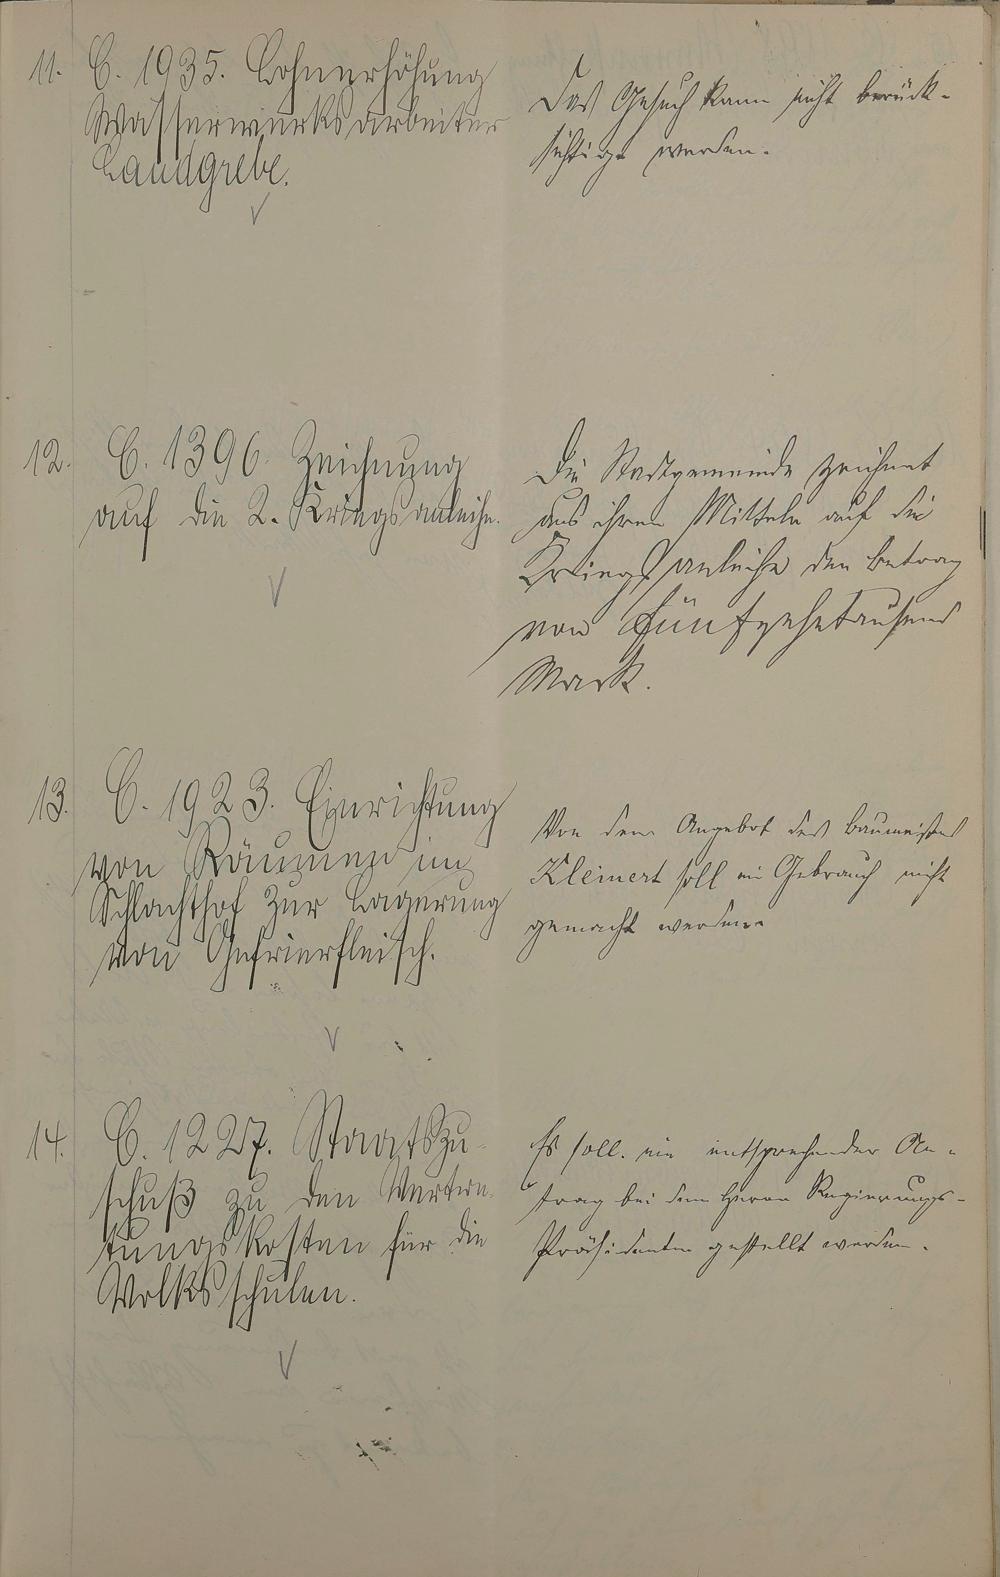 11. C. 1935. Lohnerhöhung
Wasserwerksarbeiter
Landgrebe.
Das Gesuch kann nicht berück-
sichtigt werden.
12. C. 1396. Zeichnung
auf die 2. Kriegsanleihe.
Die Stadtgemeinde zeichnet
aus ihren Mitteln auf die
Kriegsanleihe den Betrag
von Fünfzehntausend
Mark.
13. C. 1923. Einrichtung
von Räumen im
Schlachthof zur Lagerung
von Gefrierfleisch.
Von dem Angebot des Baumeisters
Kleinert soll ein Gebrauch nicht
gemacht werden.
14. C. 1227. Staatszu-
schuß zu den
kosten für die
Volksschulen.
Es soll ein entsprechender An-
trag bei dem Herrn Regierungs-
Präsidenten gestellt werden.